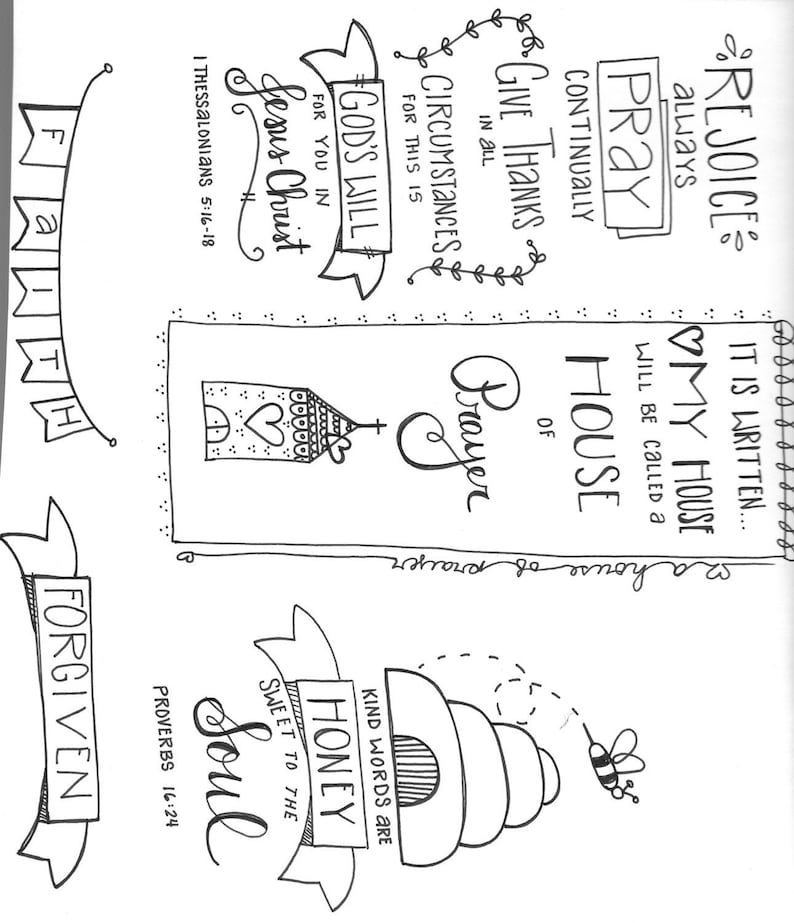 REJOICE
always
PRAY
CONTINUALLY
GIVE THANKS
IN all
CIRCUMSTANCES
FOR THIS IS
GOD'S WILL
FOR YOU IN
Jesus Christ
1 THESSALONIANS 5:16-18
IT IS WRITTEN...
MY HOUSE
WILL BE CALLED a
HOUSE
OF
Prayer
a house of prayer
KIND WORDS ARE
HONEY
SWEET TO THE
Soul
PROVERBS 16:24
FaITH
FORGIVEN